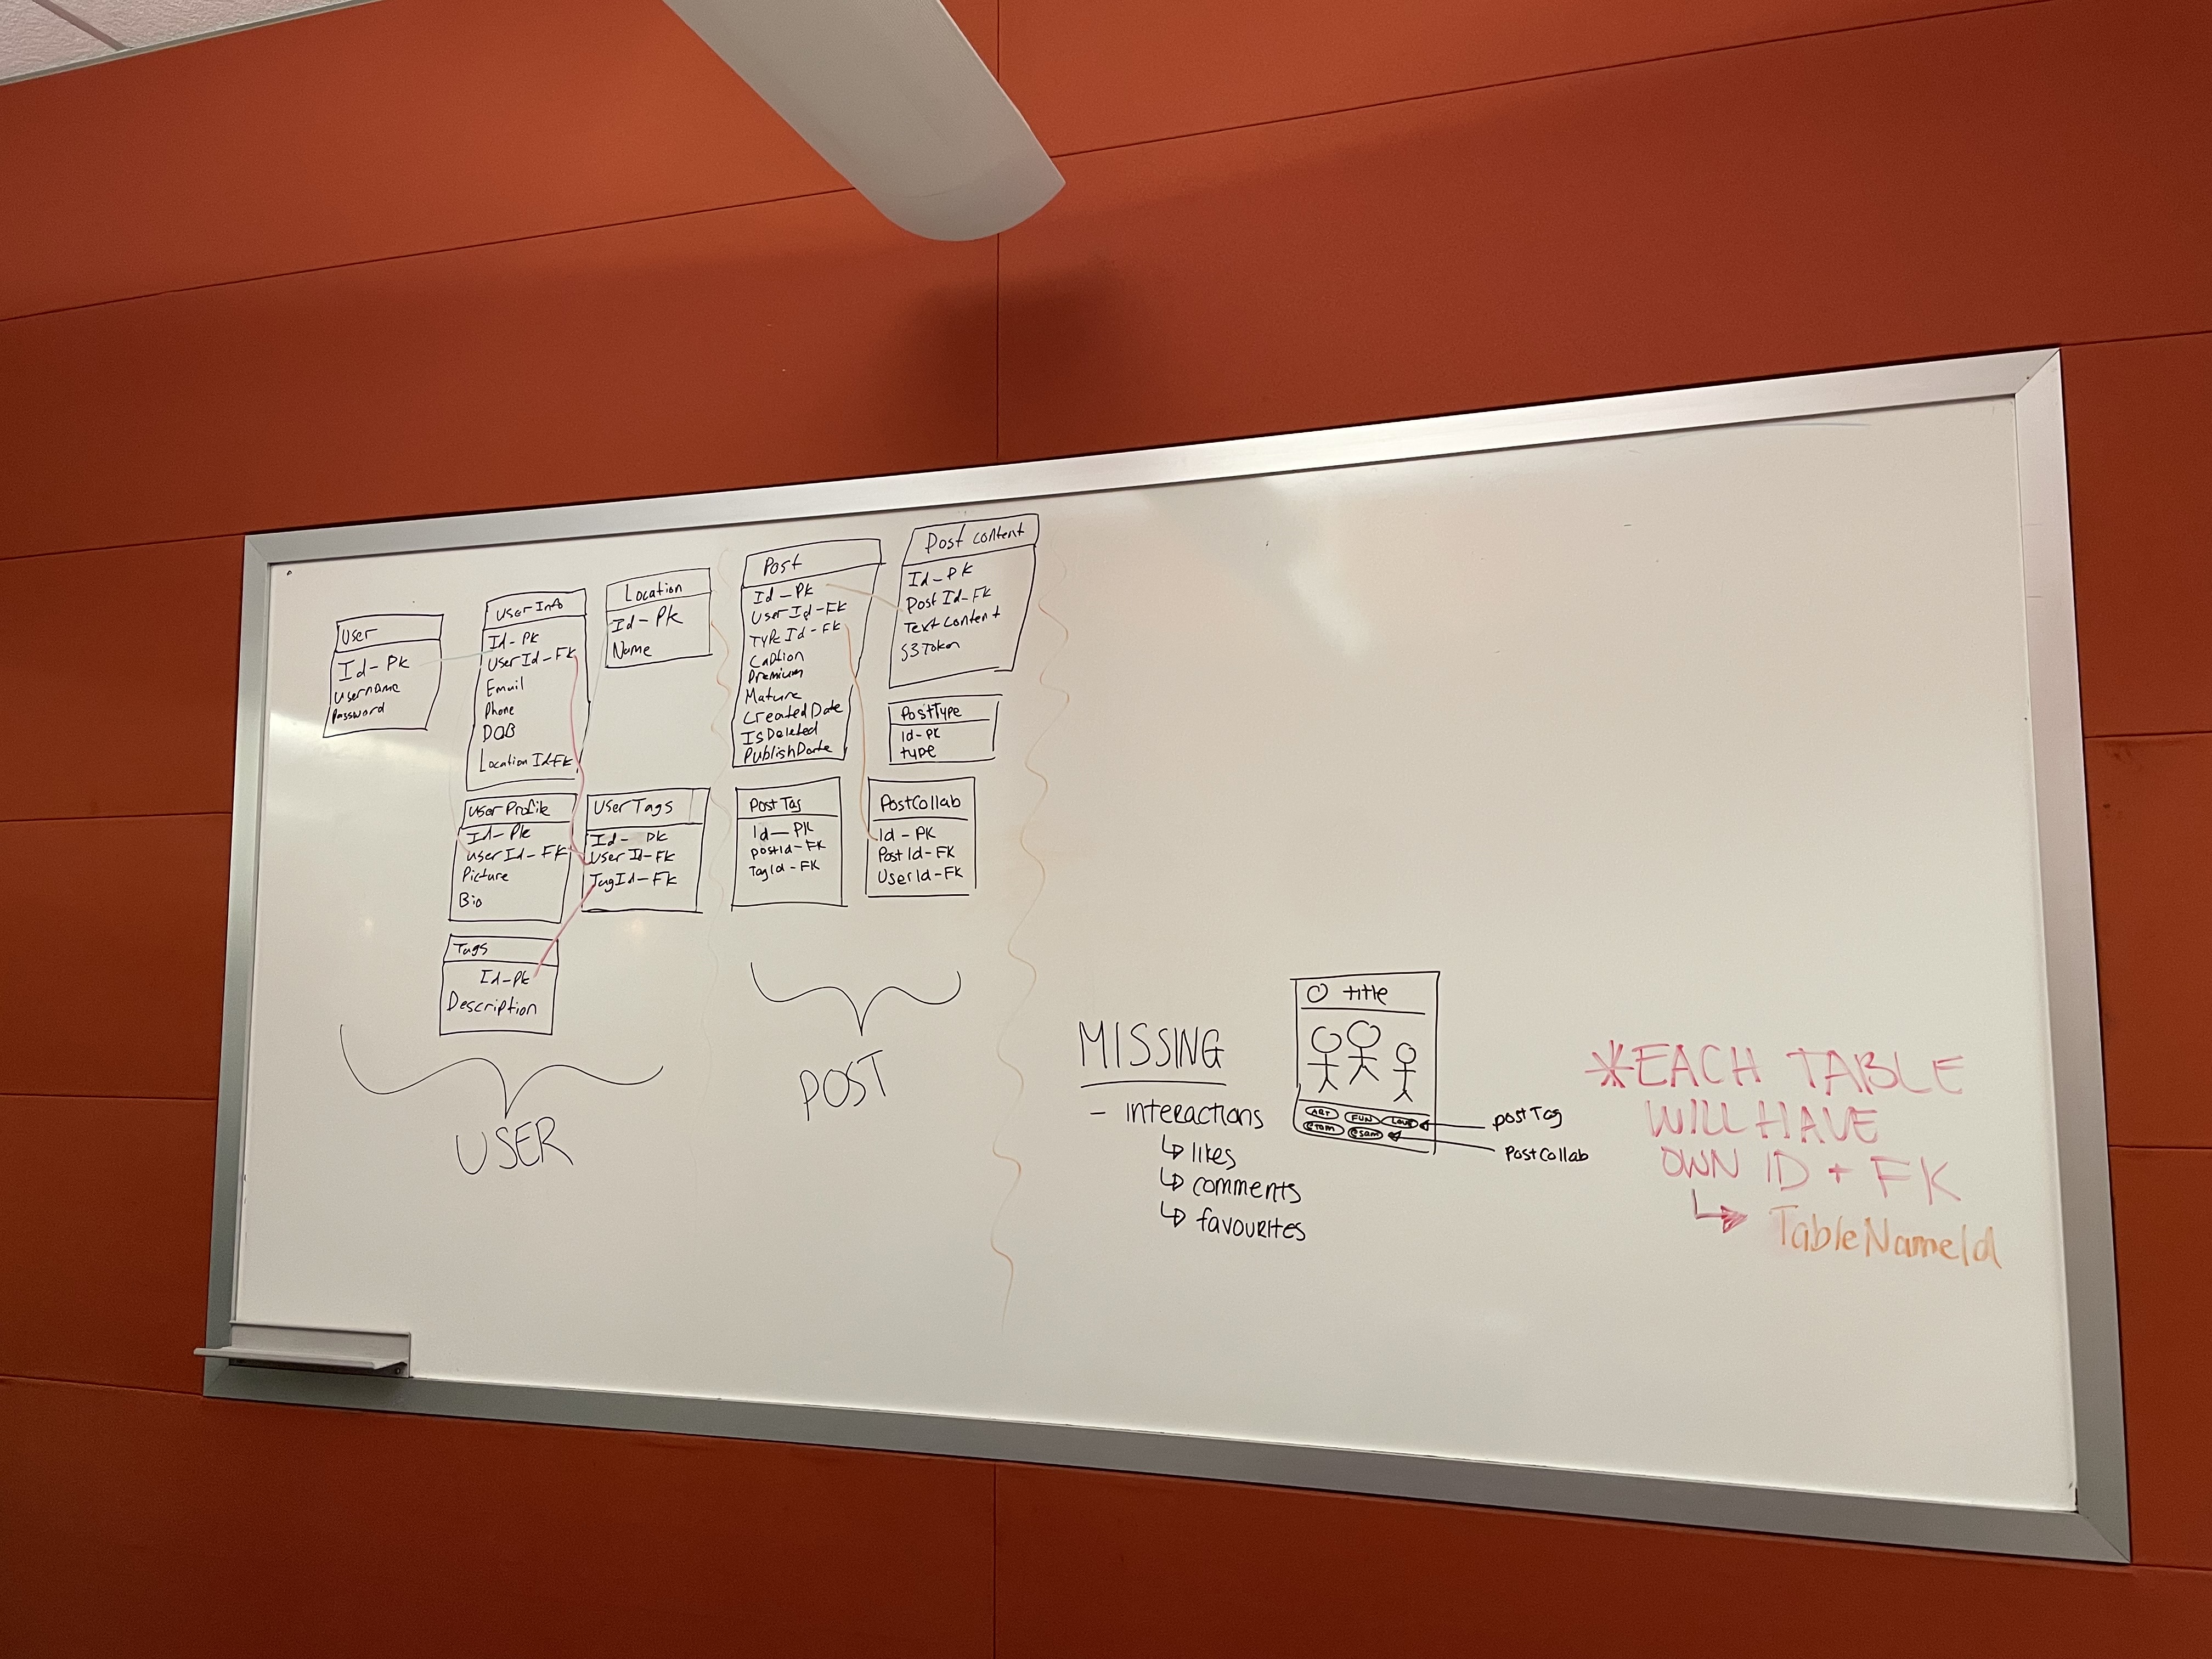 User
Id-PK
Username
Password
User Info
Id-PK
UserId-FK
Email
Phone
DOB
Location IdFK
Location
Id-PK
Name
User Profile
Id-PK
UserId-FK
Picture
Bio
User Tags
Id- PK
User Id-FK
TagId-FK
Tags
Id-PK
Description
USER
Post
Id-PK
UserId-FK
TypeId-FK
Caption
Premium
Mature
CreatedDate
IsDeleted
PublishDate
Post content
Id-PK
Post Id-FK
Text Content
S3Token
PostType
id-PK
type
Post Tag
Id-PK
postId-FK
TagId-FK
PostCollab
Id-PK
Post Id-FK
UserId-FK
POST
MISSING
- interactions
↳ likes
↳ comments
↳ favourites
title
ART FUN LOVE
@Tom @Sam
postTag
PostCollab
*EACH TABLE
WILL HAVE
OWN ID + FK
↳ TableNameId